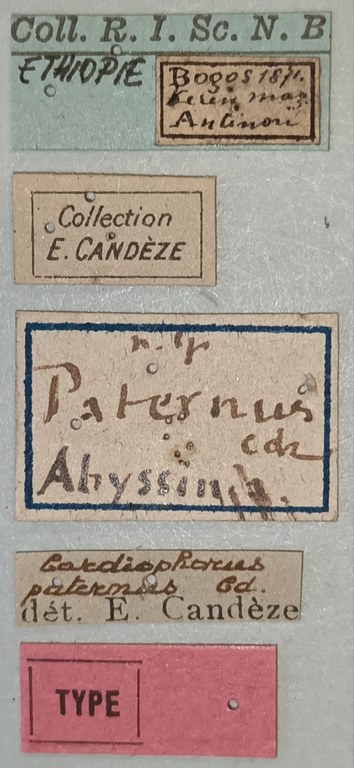 Coll. R. I. Sc. N. B
ETHIOPIE
Bogos 1871.
Keren mag.
Antinori
Collection
E. CANDÈZE
n. sp
Paternus
cdz
Abyssin
Cardiophorus
paternus Cd.
dét. E. Candèze
TYPE